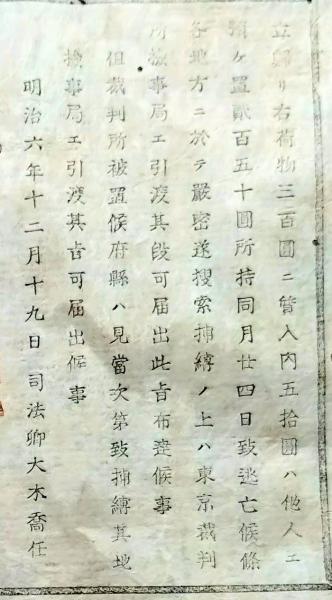 立歸リ右荷物三百圓ニ質入内五拾圓ハ他人エ
預ケ置貮百五十圓所持同月廿四日致逃亡候條
各地方ニ於テ嚴密遂搜索捕縛ノ上ハ東京裁判
所檢事局エ引渡其段可届出此旨布達候事
但裁判所被置候府縣ハ見當次第致捕縛其地
檢事局エ引渡其旨可届出候事
明治六年十二月十九日司法卿大木喬任